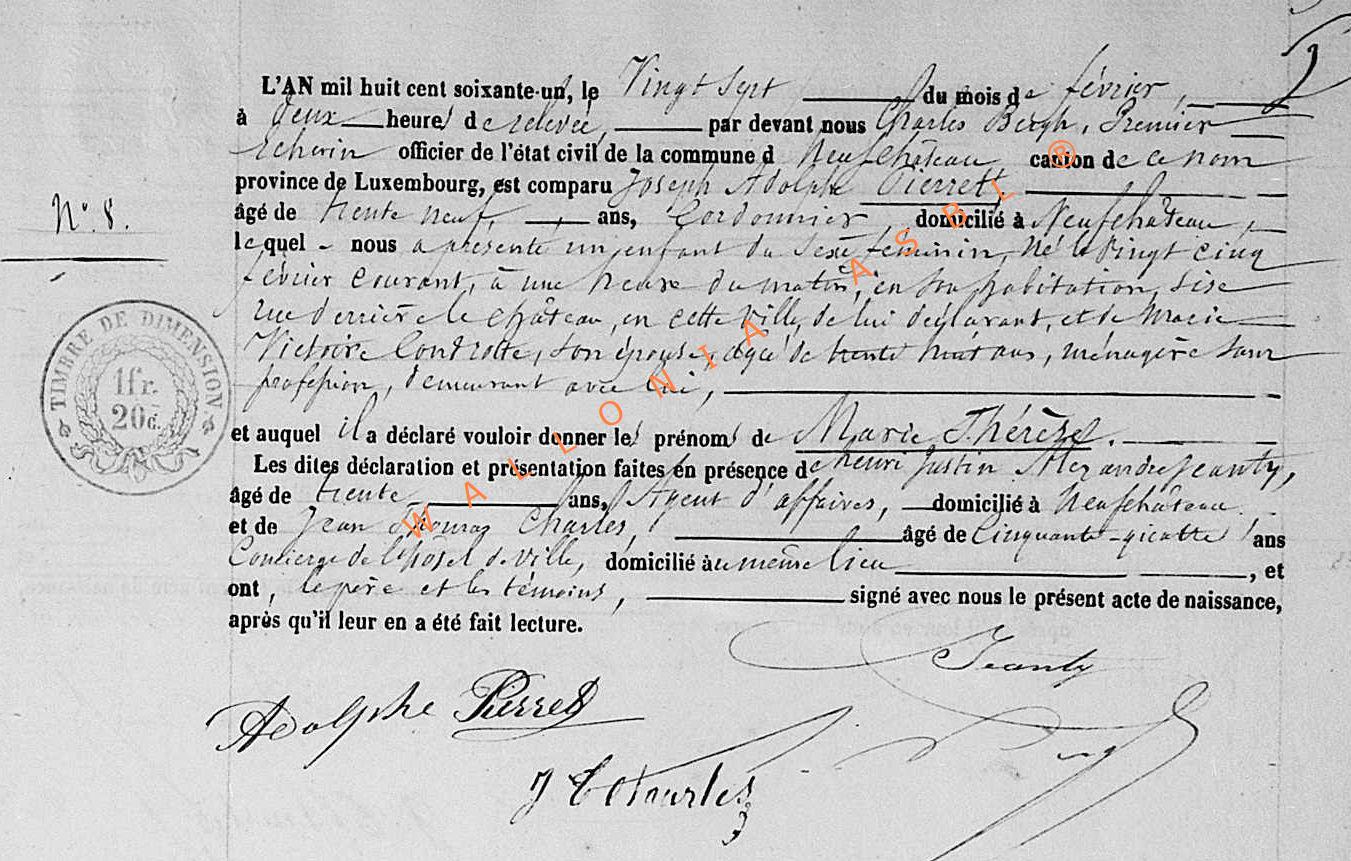 L'AN mil huit cent soixante-un, le Vingt sept du mois de février,
à deux heures de relevée, par devant nous Charles Bergh, Premier
Echevin officier de l'état civil de la commune d Neufchâteau canton de ce nom
province de Luxembourg, est comparu Joseph Adolphe Pierret,
N° 8.
âgé de trente neuf, ans, Cordonnier domicilié à Neufchâteau,
lequel nous a présenté un enfant du Sexe féminin, Né le Vingt cinq
février courant, à une heure du matin, en son habitation, sise
rue derrière le château, en cette Ville, de lui déclarant, et de Marie
Victoire son épouse, âgée de trente huit ans, ménagère sans
profession, demeurant avec lui,
TIMBRE DE DIMENSION.
1fr.
20c.
et auquel il a déclaré vouloir donner les prénoms de Marie Thérèse.
Les dites déclaration et présentation faites en présence de henri Justin Alexandre Jeanty,
âgé de trente ans, Agent d'affaires, domicilié à Neufchâteau
et de Jean Thomas Charles, âgé de Cinquante-quatre ans
Concierge de l'hôtel de ville, domicilié au même lieu, et
ont, le père et les témoins, signé avec nous le présent acte de naissance,
après qu'il leur en a été fait lecture.
Jeanty
Adolphe Pierret
J T Charles
WALLONIA ASBL ®